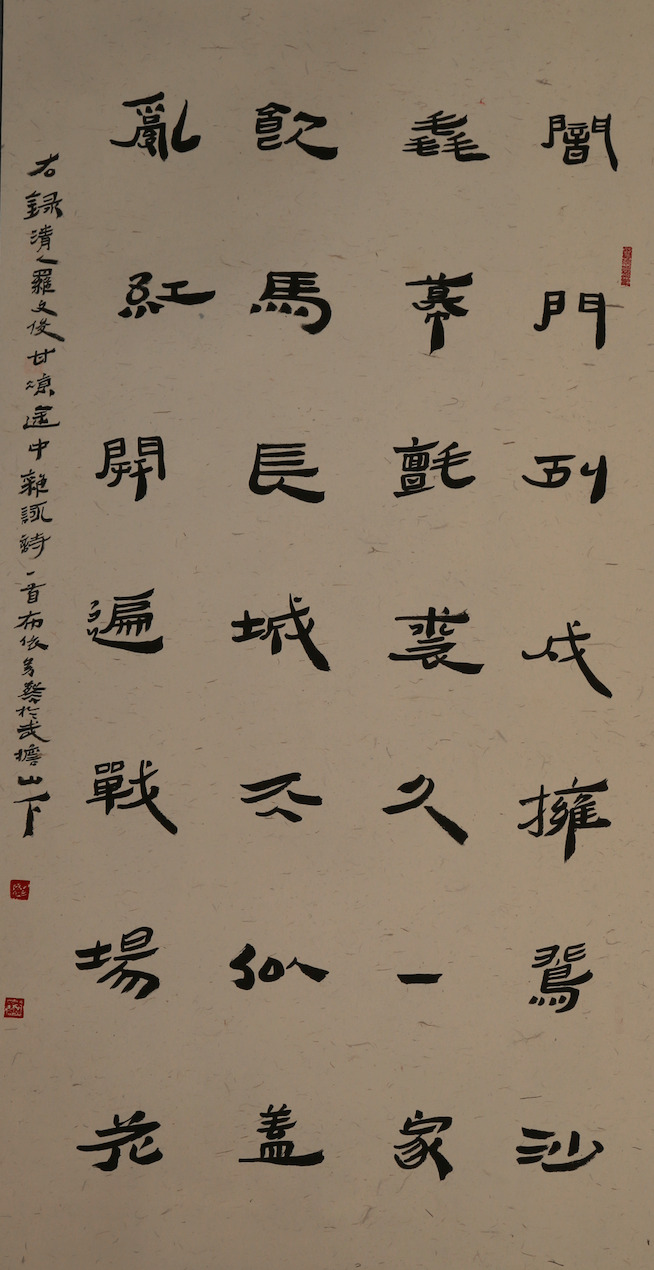 闇門列戍擁沙
毳幕氈裘久一家
飲馬長城天似蓋
亂紅開遍戰場花
右錄清人羅文俊甘涼途中雜詠詩一首布依於武擔山下